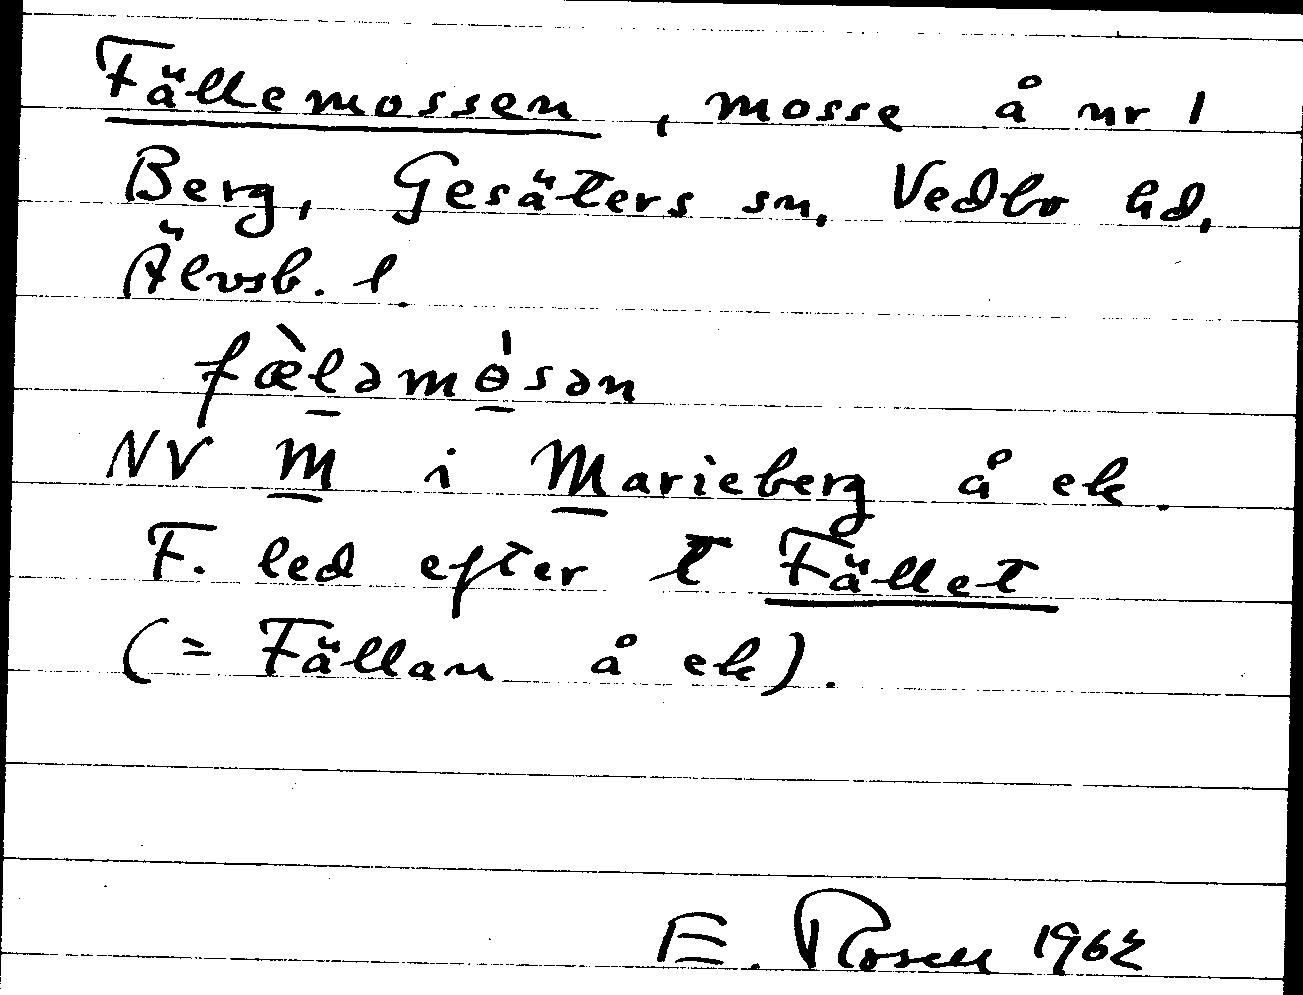 Fällemossen, mosse å nr 1
Berg, Gesäters sn, Vedbo hd,
Älvsb. l.
fæ̀l̠əmɵ̠́sən
NV M i Marieberg å ek.
F. led efter t Fället
(= Fällan å ek).
E. Rosell 1962